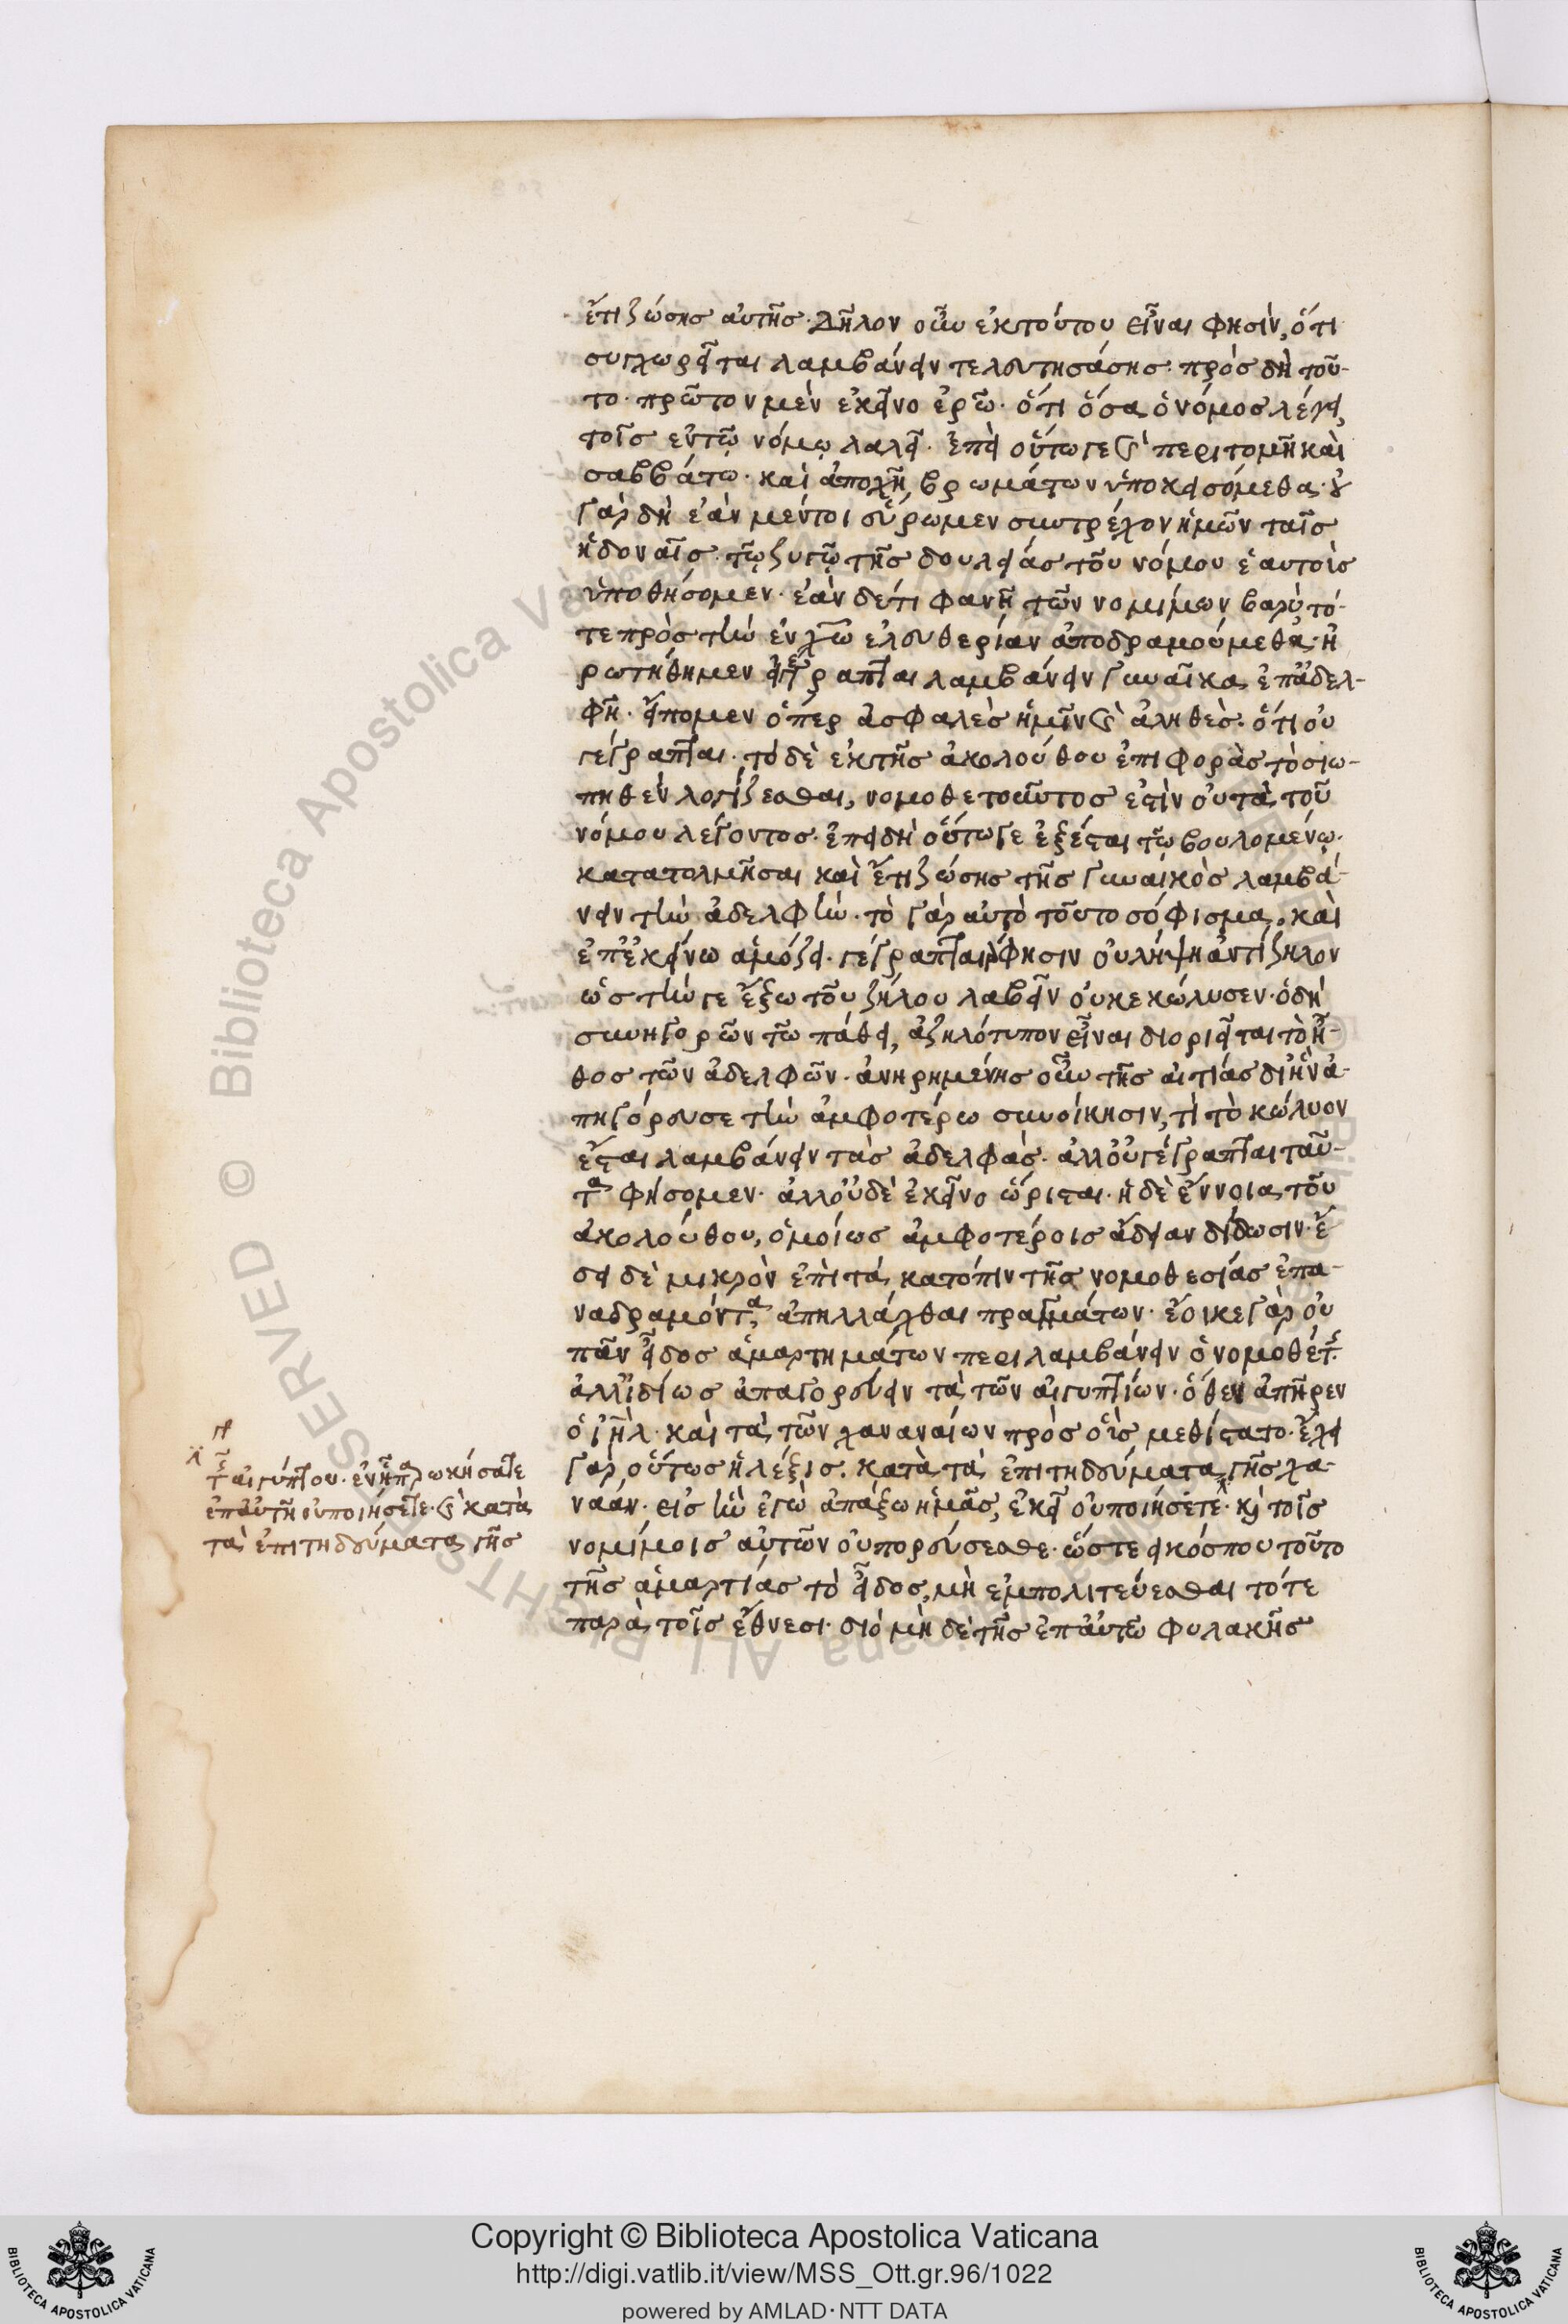 ἔτι ζώσης αὐτῆς. Δῆλον οὖν ἐκ τούτου εἶναι φησὶν, ὅτι
συγχωρεῖται λαμβάνειν τελευτησάσης. πρὸς δὴ τοῦ-
το πρῶτον μὲν ἐκεῖνο ἐρῶ. ὅτι ὅσα ὁ νόμος λέγει,
τοῖς ἐν τῷ νόμῳ λαλεῖ. ἐπεὶ οὕτω γε καὶ περιτομῇ καὶ
σαββάτῳ. καὶ ἀποχῇ βρωμάτων ὑποκεισόμεθα. οὐ
γὰρ δὴ ἐὰν μέντοι εὕρωμεν συντρέχον ἡμῶν ταῖς
ἡδοναῖς. τῷ ζυγῷ τῆς δουλείας τοῦ νόμου ἑαυτοὺς
ὑποθήσομεν. ἐὰν δέ τι φανῇ τῶν νομίμων βαρὺ τό-
τε πρὸς τὴν ἐν χῶ ἐλευθερίαν ἀποδραμούμεθα. ἠ
ρωτήθημεν εἰ γέγραπται λαμβάνειν γυναῖκα ἐπ' ἀδελ-
φῇ. εἴπομεν ὅπερ ἀσφαλὲς ἡμῖν καὶ ἀληθὲς. ὅτι οὐ
γέγραπται. τὸ δὲ ἐκ τῆς ἀκολούθου ἐπιφορᾶς τὸ σιω-
πηθὲν λογίζεσθαι, νομοθετοῦντος ἐστὶν οὐ τὰ τοῦ
νόμου λέγοντος. ἐπεὶ δὴ οὕτω γε ἐξέσται τῷ βουλομένῳ.
κατατολμῆσαι καὶ ἔτι ζώσης τῆς γυναικὸς λαμβά-
νειν τὴν ἀδελφὴν. τὸ γὰρ αὐτὸ τοῦτο σόφισμα. καὶ
ἐπ' ἐκείνω ἁμόζει. γέγραπται φησιν οὐ λήψη ἀντίζηλον
ὡς τὴν γε ἔξω τοῦ ζήλου λαβεῖν οὐκ ἐκώλυσεν. ὁ δὴ
συνηγορῶν τῶ πάθει, ἀζηλότυπον εἶναι διοριεῖται τὸ ἦ-
θος τῶν ἀδελφῶν. ἀνηρημένης οὖν τῆς αἰτίας δι' ἣν ἀ-
πηγόρευσε τὴν ἀμφοτέρω συνοίκησιν, τί τὸ κώλυον
ἔσται λαμβάνειν τὰς ἀδελφάς. ἀλλ' οὐ γέγραπται ταῦ-
τα φήσομεν. ἀλλ' οὐδὲ ἐκεῖνο ὥρισται. ἡ δὲ ἔννοια τοῦ
ἀκολούθου, ὁμοίως ἀμφοτέροις ἄδειαν δίδωσιν. ἔ
δει δὲ μικρὸν ἐπὶ τὰ κατόπιν τῆς νομοθεσίας ἐπα-
ναδραμόντα ἀπηλλάχθαι πραγμάτων. ἔοικε γὰρ οὐ
πᾶν εἶδος ἁμαρτημάτων περιλαμβάνειν ὁ νομοθέτης.
ἀλλ' ἰδίως ἀπαγορεύειν τὰ τῶν αἰγυπτίων. ὅθεν ἀπῆρεν
ὁ ἰηλ. καὶ τὰ τῶν χαναναίων πρὸς οἷς μεθίστατο. ἔχει
γὰρ οὕτως ἡ λέξις. κατὰ τὰ ἐπιτηδεύματα γῆς χα-
ναάν. εἰς ἣν ἐγὼ ἀπάξω ἡμᾶς, ἐκεῖ οὐ ποιήσετε. καὶ τοῖς
νομίμοις αὐτῶν οὐ πορεύσεσθε. ὥστε εἰκός που τοῦτο
τῆς ἁμαρτίας τὸ εἶδος, μὴ ἐμπολιτεύεσθαι τότε
παρὰ τοῖς ἔθνεσι. διὸ μὴ δὲ τῆς ἐπ' αὐτῶ φυλακῆς
γῆς αἰγύπτου. ἐν ᾗ παρωκήσατε
ἐπ' αὐτῇ οὐ ποιήσετε. καὶ κατὰ
τὰ ἐπιτηδεύματα γῆς
Copyright © Biblioteca Apostolica Vaticana
http://digi.vatlib.it/view/MSS_Ott.gr.96/1022
powered by AMLAD·NTT DATA
BIBLIOTECA APOSTOLICA VATICANA
BIBLIOTECA APOSTOLICA VATICANA